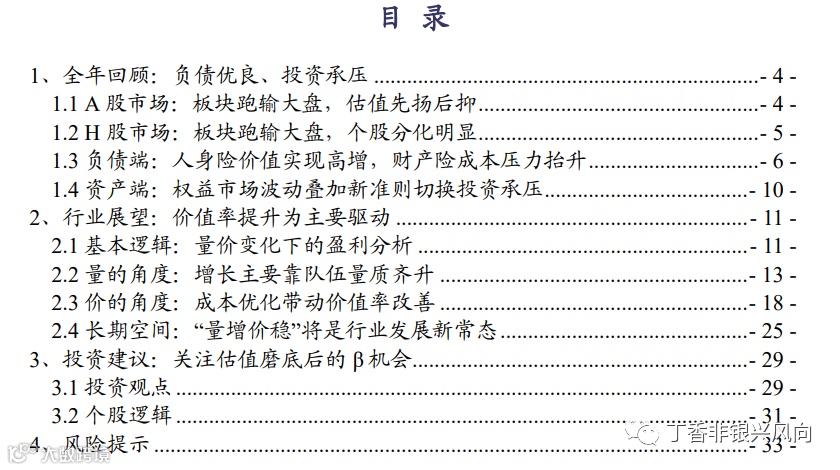 目 录
1、全年回顾：负债优良、投资承压 ........................ - 4 -
1.1 A 股市场：板块跑输大盘，估值先扬后抑 ........................ - 4 -
1.2 H 股市场：板块跑输大盘，个股分化明显 ........................ - 5 -
1.3 负债端：人身险价值实现高增，财产险成本压力抬升 ........................ - 6 -
1.4 资产端：权益市场波动叠加新准则切换投资承压 ........................ - 10 -
2、行业展望：价值率提升为主要驱动 ........................ - 11 -
2.1 基本逻辑：量价变化下的盈利分析 ........................ - 11 -
2.2 量的角度：增长主要靠队伍量质齐升 ........................ - 13 -
2.3 价的角度：成本优化带动价值率改善 ........................ - 18 -
2.4 长期空间：“量增价稳”将是行业发展新常态 ........................ - 25 -
3、投资建议：关注估值磨底后的 β 机会 ........................ - 29 -
3.1 投资观点 ........................ - 29 -
3.2 个股逻辑 ........................ - 31 -
4、风险提示 ........................ - 33 -
丁香非银兴风向
大数跨境